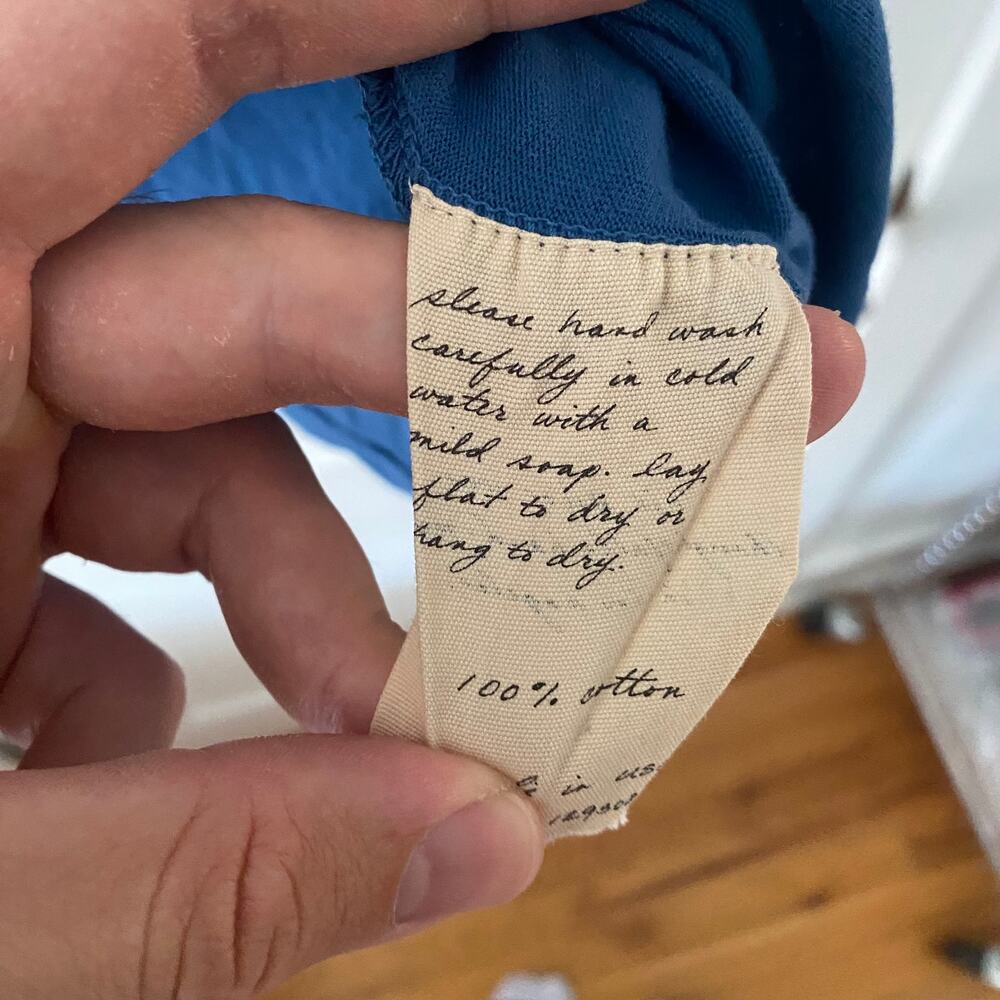 please hand wash
carefully in cold
water with a
mild soap. lay
flat to dry or
hang to dry.
100% cotton
in us